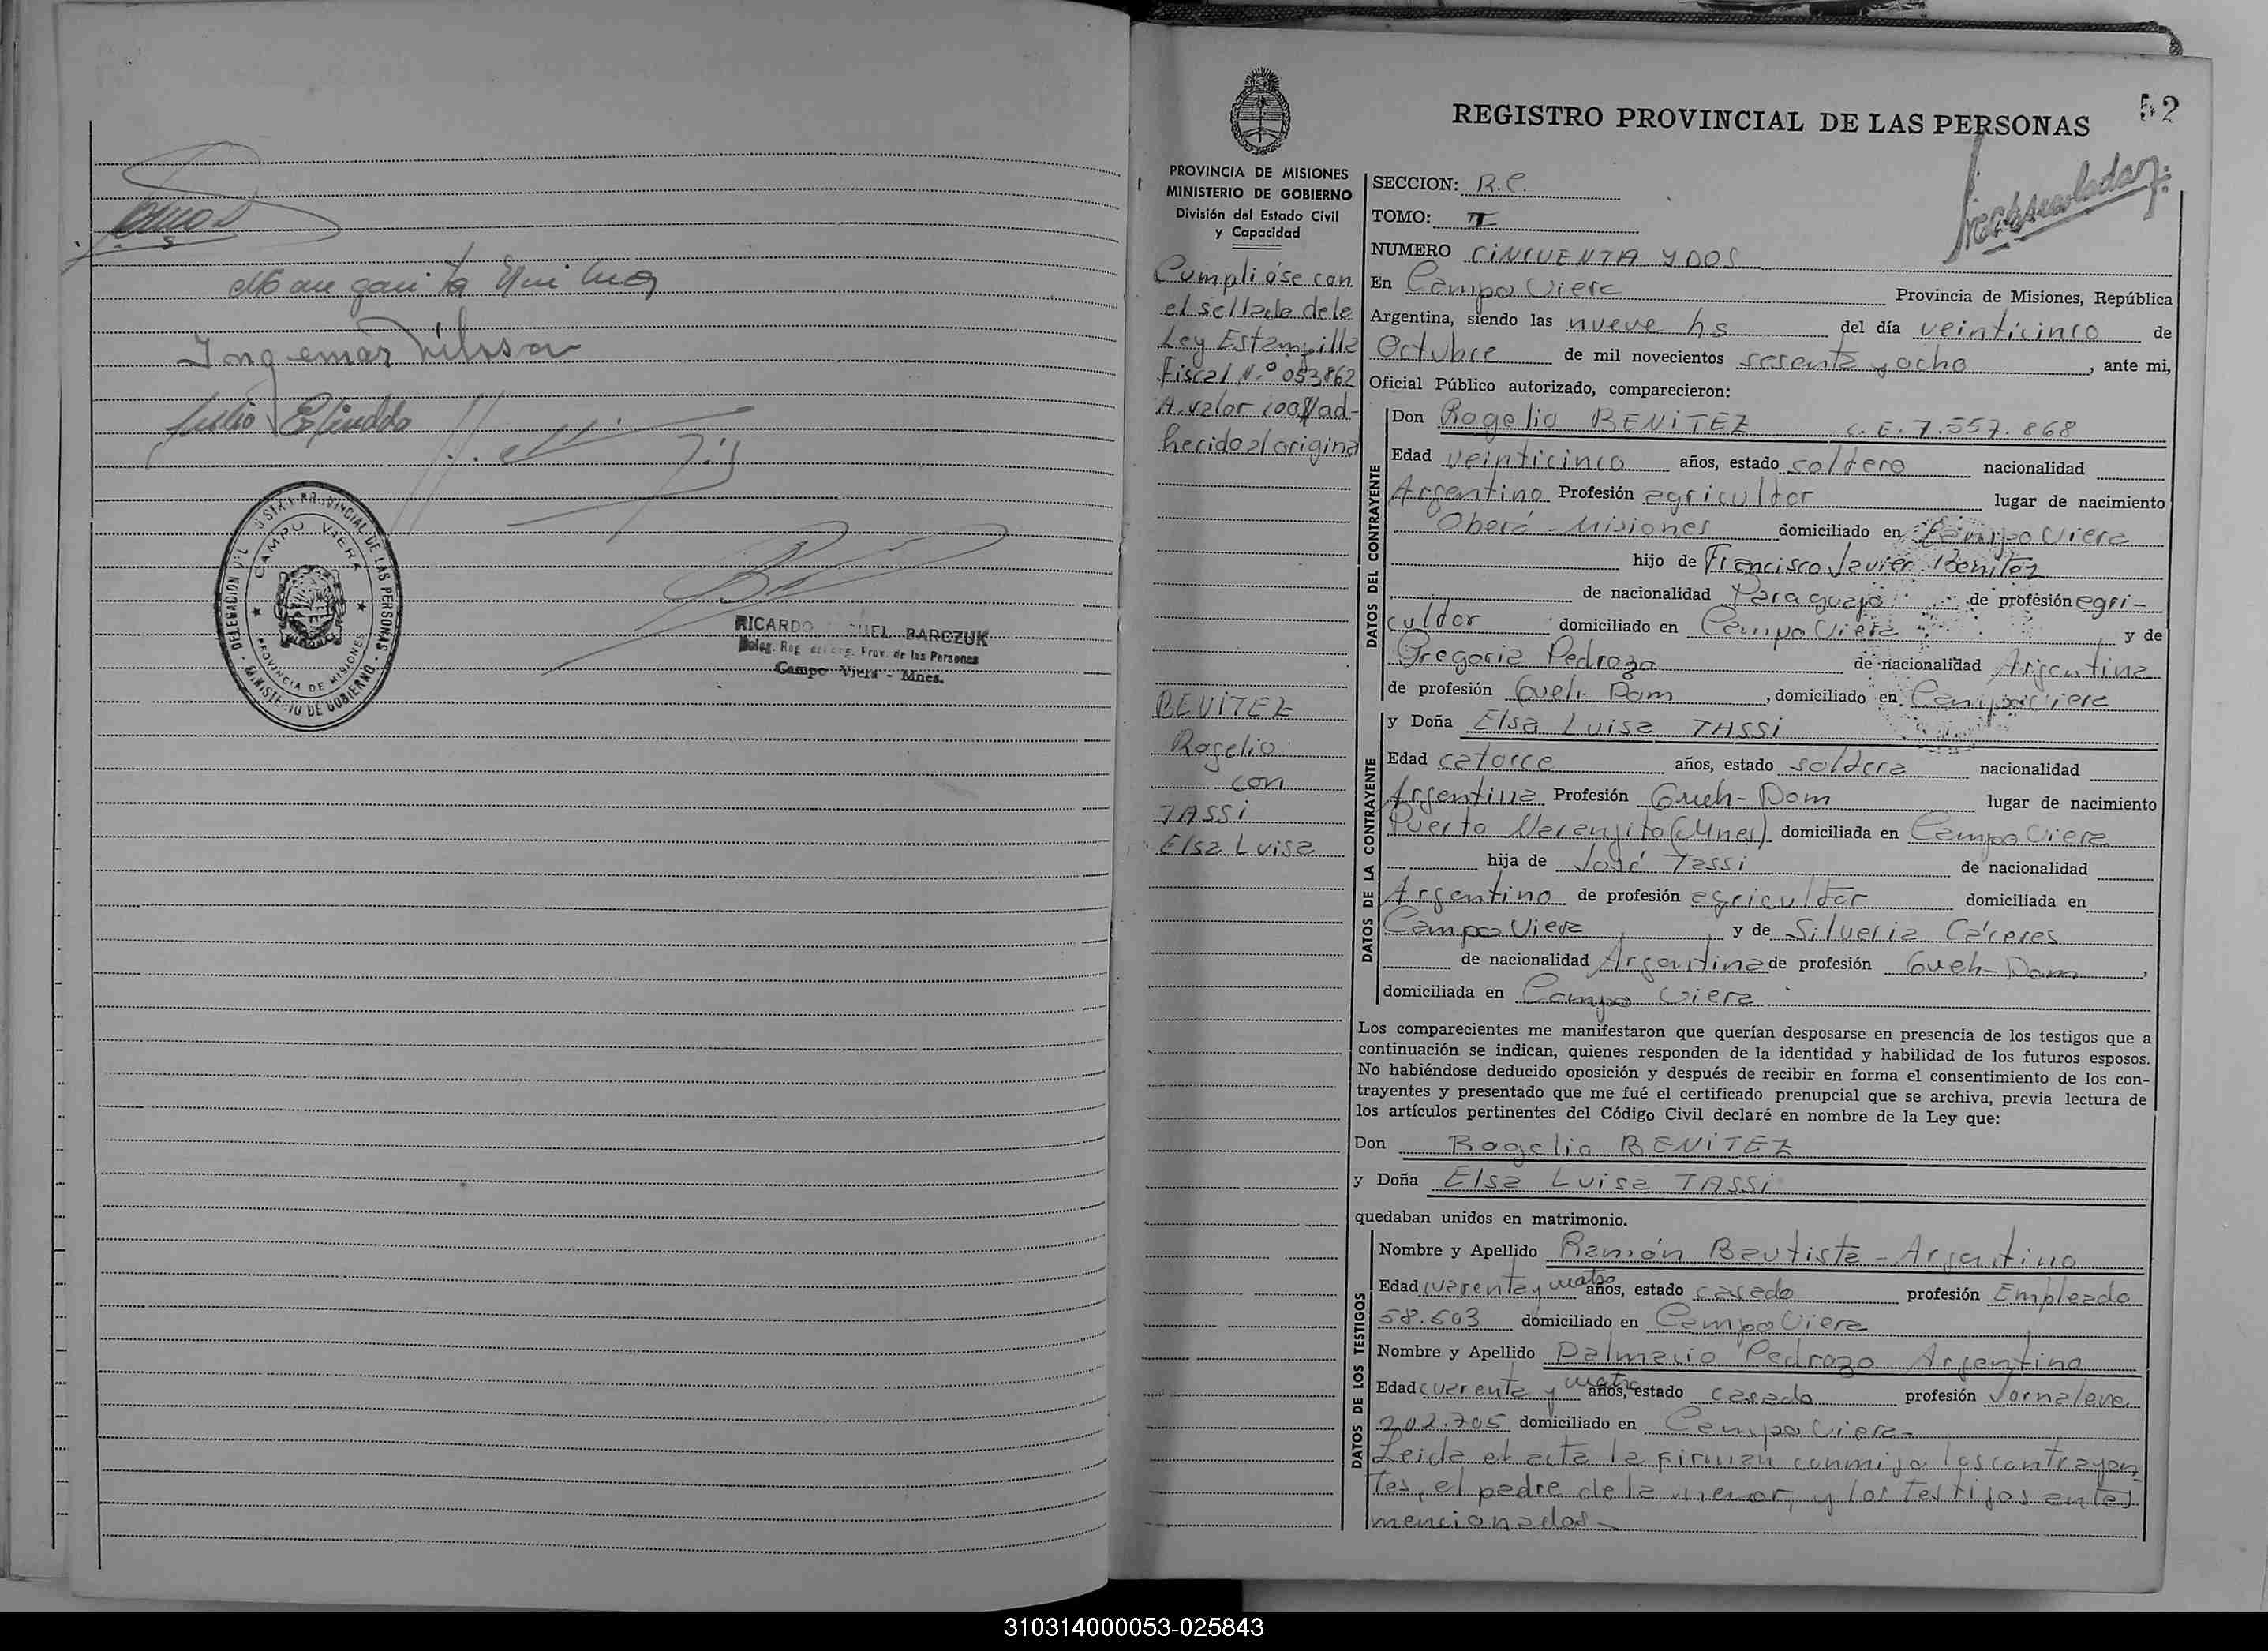 Margarita
Julio
DELEGACION CIVIL REGISTRO PROVINCIAL DE LAS PERSONAS - MINISTERIO DE GOBIERNO
CAMPO VIERA
PROVINCIA DE MISIONES
RICARDO BARCZUK
de las Personas
Campo Viera - Mnes.
52
REGISTRO PROVINCIAL DE LAS PERSONAS
PROVINCIA DE MISIONES
MINISTERIO DE GOBIERNO
División del Estado Civil
y Capacidad
Cumplióse con
el sellado de la
Ley Estampilla
Fiscal N.º 053862
A valor 100$ ad-
herido al original
BENITEZ
Rogelio
con
TASSI
Elsa Luisa
SECCION: R.C.
TOMO: II
NUMERO CINCUENTA Y DOS
En Campo Viera Provincia de Misiones, República
Argentina, siendo las nueve hs del día veinticinco de
Octubre de mil novecientos sesenta y ocho, ante mi,
Oficial Público autorizado, comparecieron:
DATOS DEL CONTRAYENTE
Don Rogelio BENITEZ C.E. 7.557.868
Edad veinticinco años, estado soltero nacionalidad
Argentino Profesión agricultor lugar de nacimiento
Oberá - Misiones domiciliado en Campo Viera
hijo de Francisco Javier Benitez
de nacionalidad Paraguayo de profesión agri-
cultor domiciliado en Campo Viera y de
Gregoria Pedrozo de nacionalidad Argentina
de profesión Queh. Dom, domiciliado en Campo Viera
DATOS DE LA CONTRAYENTE
y Doña Elsa Luisa TASSI
Edad catorce años, estado soltera nacionalidad
Argentina Profesión Queh-Dom lugar de nacimiento
Puerto Naranjito (Mnes) domiciliada en Campo Viera
hija de José Tassi de nacionalidad
Argentino de profesión agricultor domiciliada en
Campo Viera y de Silveria Cáceres
de nacionalidad Argentina de profesión Queh-Dom,
domiciliada en Campo Viera
Los comparecientes me manifestaron que querían desposarse en presencia de los testigos que a
continuación se indican, quienes responden de la identidad y habilidad de los futuros esposos.
No habiéndose deducido oposición y después de recibir en forma el consentimiento de los con-
trayentes y presentado que me fué el certificado prenupcial que se archiva, previa lectura de
los artículos pertinentes del Código Civil declaré en nombre de la Ley que:
Don Rogelio BENITEZ
y Doña Elsa Luisa TASSI
quedaban unidos en matrimonio.
DATOS DE LOS TESTIGOS
Nombre y Apellido Ramón Bautista - Argentino
Edad cuarenta y cuatro años, estado casado profesión Empleado
58.503 domiciliado en Campo Viera
Nombre y Apellido Dalmacio Pedrozo Argentino
Edad cuarenta y cuatro años, estado casado profesión Jornalero
202.705 domiciliado en Campo Viera-
Leida el acta la firman conmigo los contrayen-
tes, el padre de la menor, y los testigos antes
mencionados-
310314000053-025843